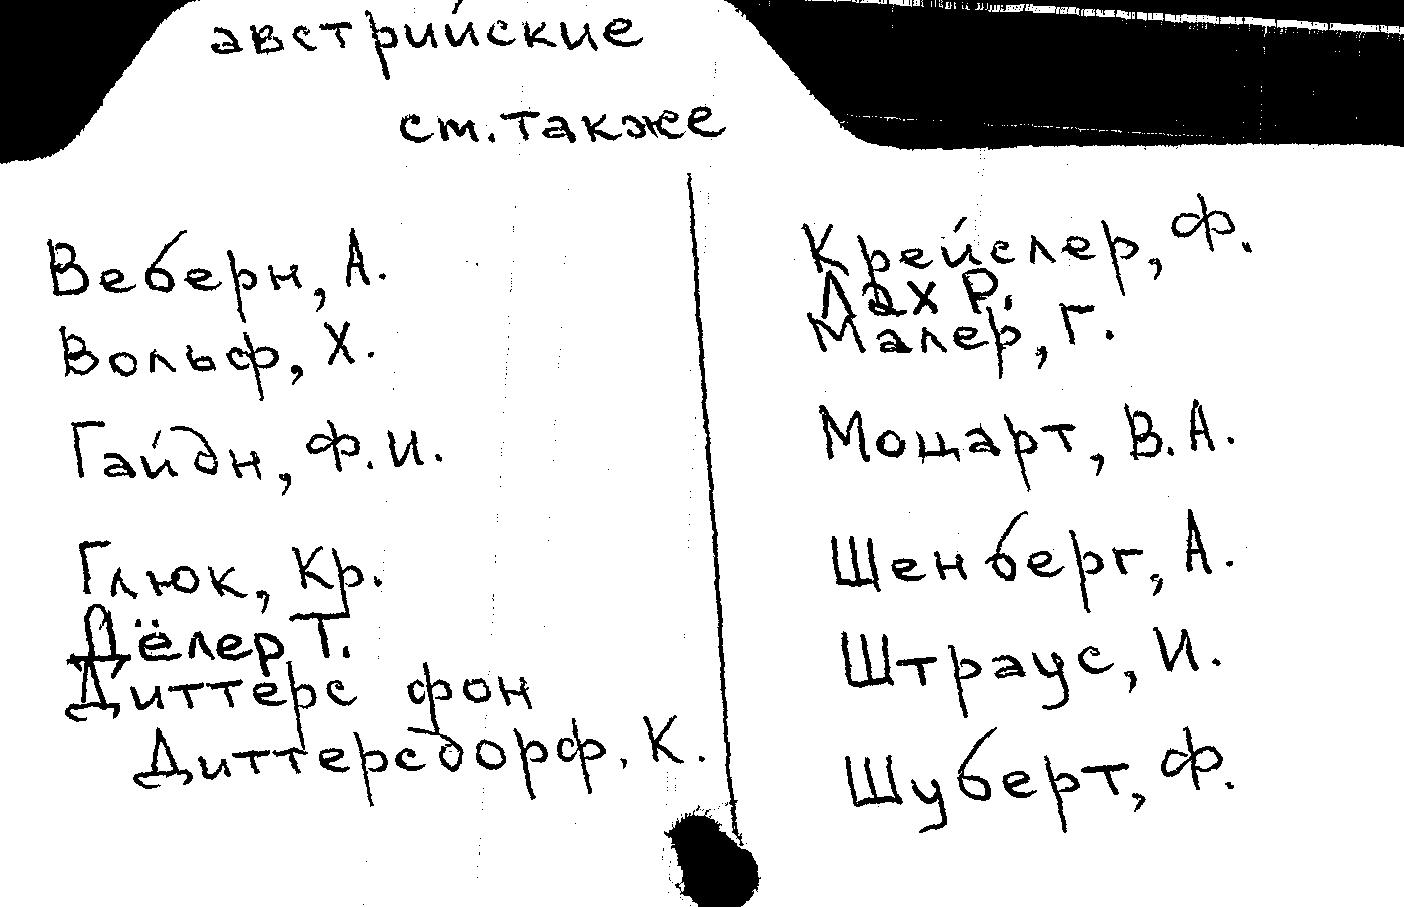 австрийские
ст. также
Веберн, А.
Вольф, Х.
Гайдн, Ф. И.
Глюк, Кр.
Дёлер Т.
Диттерс фон
Диттерсдорф, К.
Крейслер, Ф.
Лах Р.
Малер, Г.
Моцарт, В. А.
Шенберг, А.
Штраус, И.
Шуберт, Ф.